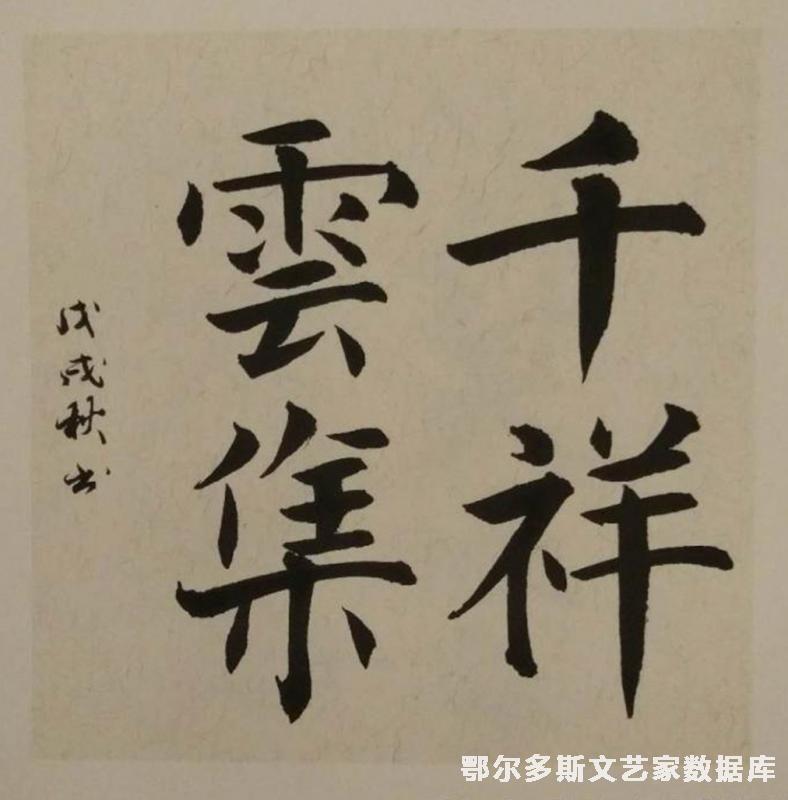 千祥
雲集
戊戌秋书
鄂尔多斯文艺家数据库